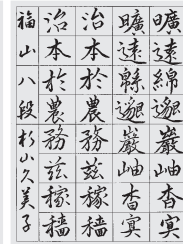 曠遠綿邈巖岫杳冥
曠遠緜邈巖岫杳冥
治本於農務茲稼穡
治本於農務茲稼穡
福山八段杉山久美子